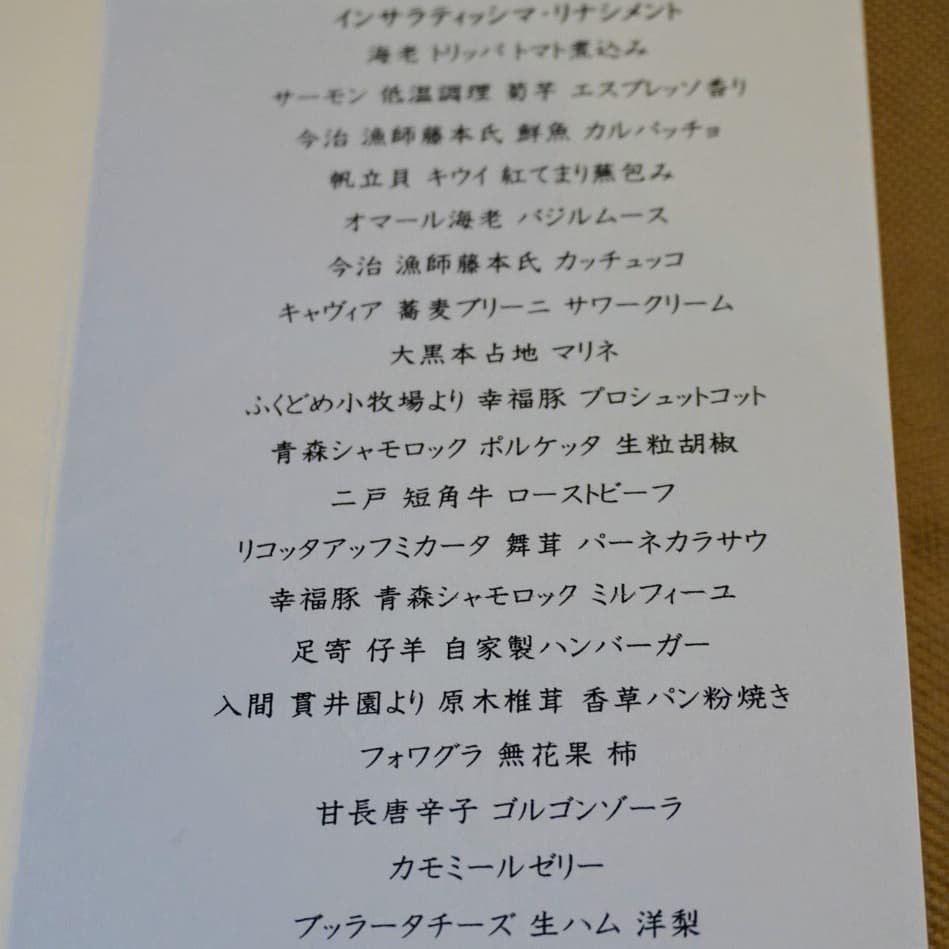 インサラティッシマ・リナシメント
海老 トリッパ トマト煮込み
サーモン 低温調理 菊芋 エスプレッソ香り
今治 漁師藤本氏 鮮魚 カルパッチョ
帆立貝 キウイ 紅てまり蕪包み
オマール海老 バジルムース
今治 漁師藤本氏 カッチュッコ
キャヴィア 蕎麦ブリーニ サワークリーム
大黒本占地 マリネ
ふくどめ小牧場より 幸福豚 プロシュットコット
青森シャモロック ポルケッタ 生粒胡椒
二戸 短角牛 ローストビーフ
リコッタアッフミカータ 舞茸 パーネカラサウ
幸福豚 青森シャモロック ミルフィーユ
足寄 仔羊 自家製ハンバーガー
入間 貫井園より 原木椎茸 香草パン粉焼き
フォワグラ 無花果 柿
甘長唐辛子 ゴルゴンゾーラ
カモミールゼリー
ブッラータチーズ 生ハム 洋梨